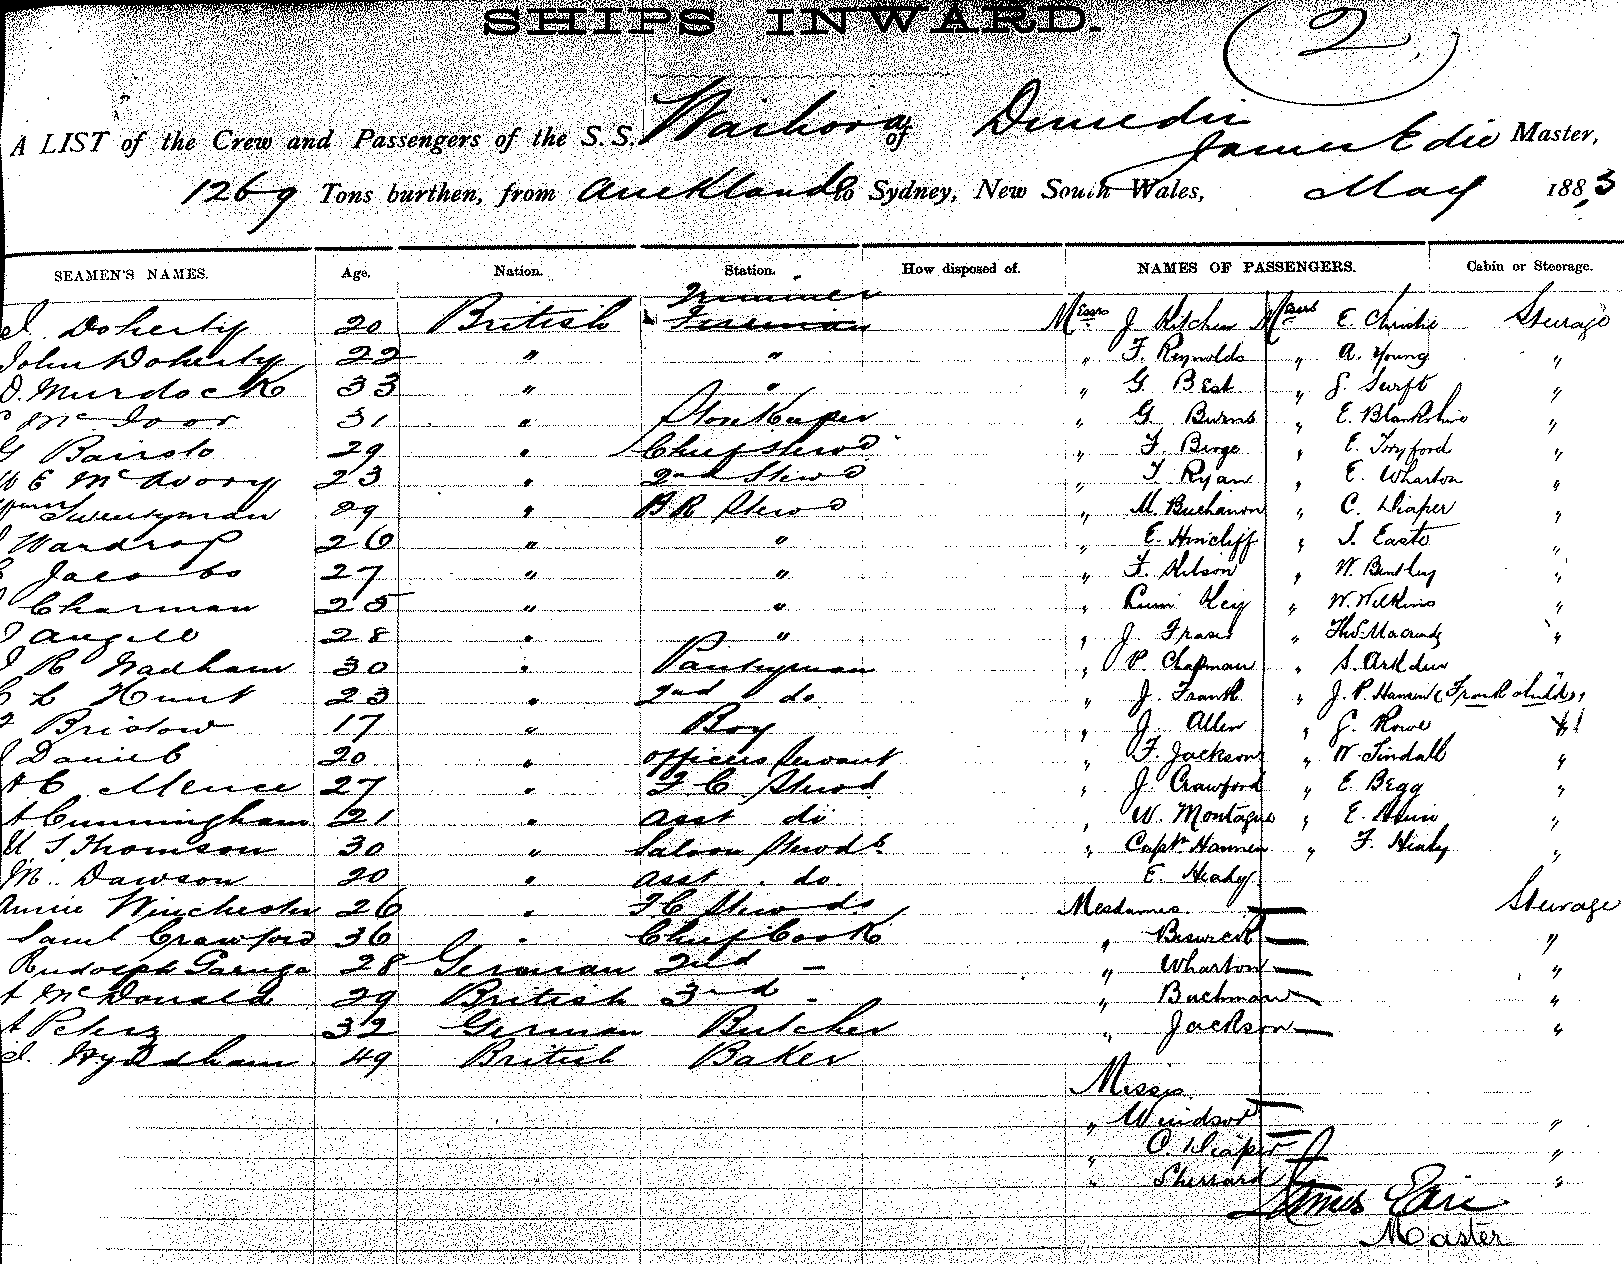 SHIPS INWARD.
2
A LIST of the Crew and Passengers of the S.S. Waihora of Dunedin James Edie Master,
1269 Tons burthen, from Auckland to Sydney, New South Wales, May 1883
SEAMEN'S NAMES. Age. Nation. Station. How disposed of. NAMES OF PASSENGERS. Cabin or Steerage.
Trimmer
Doherty 20 British Fireman Messrs J Kitchen Messrs E. Christie Steerage
John Doherty 22 " " " F. Reynolds " A. Young "
D. Murdock 33 " " " G Best " G. Swift "
31 " Storekeeper " G Burns " E. Blankshine "
G Bairsto 29 " Chief Stewd " F. Berge " E. Tryford "
23 " 2nd Stewd " T Ryan " E. Wharton "
Twentyman 29 " B R Stewd " M. Buchanon " C. Diaper "
Wardrop 26 " " " E. Hincliff " T. Easto "
Jacobs 27 " " " F. Kilson " W. Bentley "
Charman 25 " " " Key " W. Wilkins "
Angell 28 " " " J Fraser " Thos. "
R Wadham 30 " Pantryman " P. Chapman " S. "
L Hunt 23 " 2nd do " J. Frank " J. P. Hansen (Frank
Bristow 17 " Boy " J Allen " G. Rowe
Daniels 20 " Officers Servant " F. Jackson " W Tindall "
Mence 27 " F C Stewd " J. Crawford " E. Begg "
A Cunningham 21 " asst do " W. Montague " E. "
S Thomson 30 " Saloon Stewds " Captn Hannen " F. Healy "
M. Dawson 20 " asst do. E. Healy
Annie Winchester 26 " F C Stewds Mesdames Steerage
Saml Crawford 36 " Chief Cook " Beswick "
Rudolph 28 German 2nd - " Wharton "
A McDonald 29 British 3rd - " Buchman "
A Peters 32 German Butcher " Jackson "
Wyndham 49 British Baker
Misses
" Windsor "
" C. Diaper "
" Sherrard "
James Edie
Master